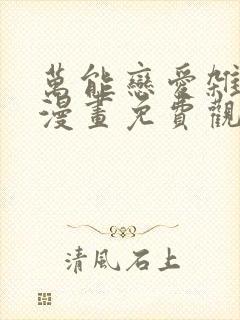 萬能戀愛雜
漫畫免費觀
清風石上